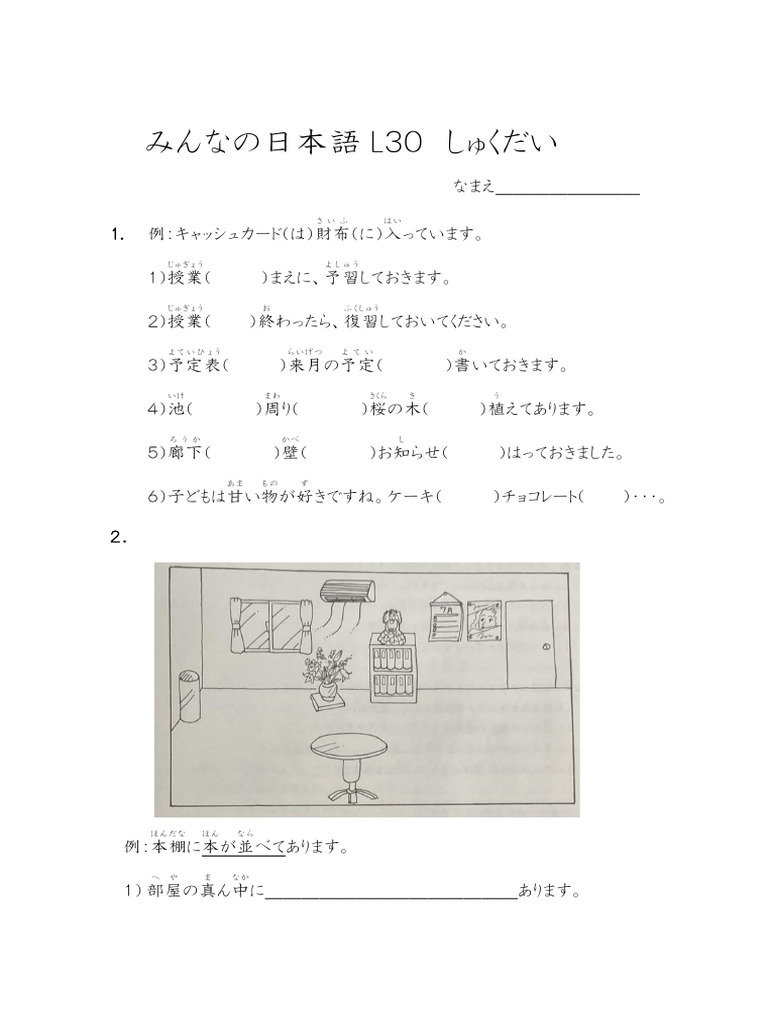 みんなの日本語 L30　しゅくだい
なまえ________________
1.　例：キャッシュカード（は）財布（に）入っています。
1）授業（　　　）まえに、予習しておきます。
2）授業（　　　）終わったら、復習しておいてください。
3）予定表（　　　）来月の予定（　　　）書いておきます。
4）池（　　　）周り（　　　）桜の木（　　　）植えてあります。
5）廊下（　　　）壁（　　　）お知らせ（　　　）はっておきました。
6）子どもは甘い物が好きですね。ケーキ（　　　）チョコレート（　　　）・・・。
2.
7月
例：本棚に本が並べてあります。
1）部屋の真ん中に____________________________あります。